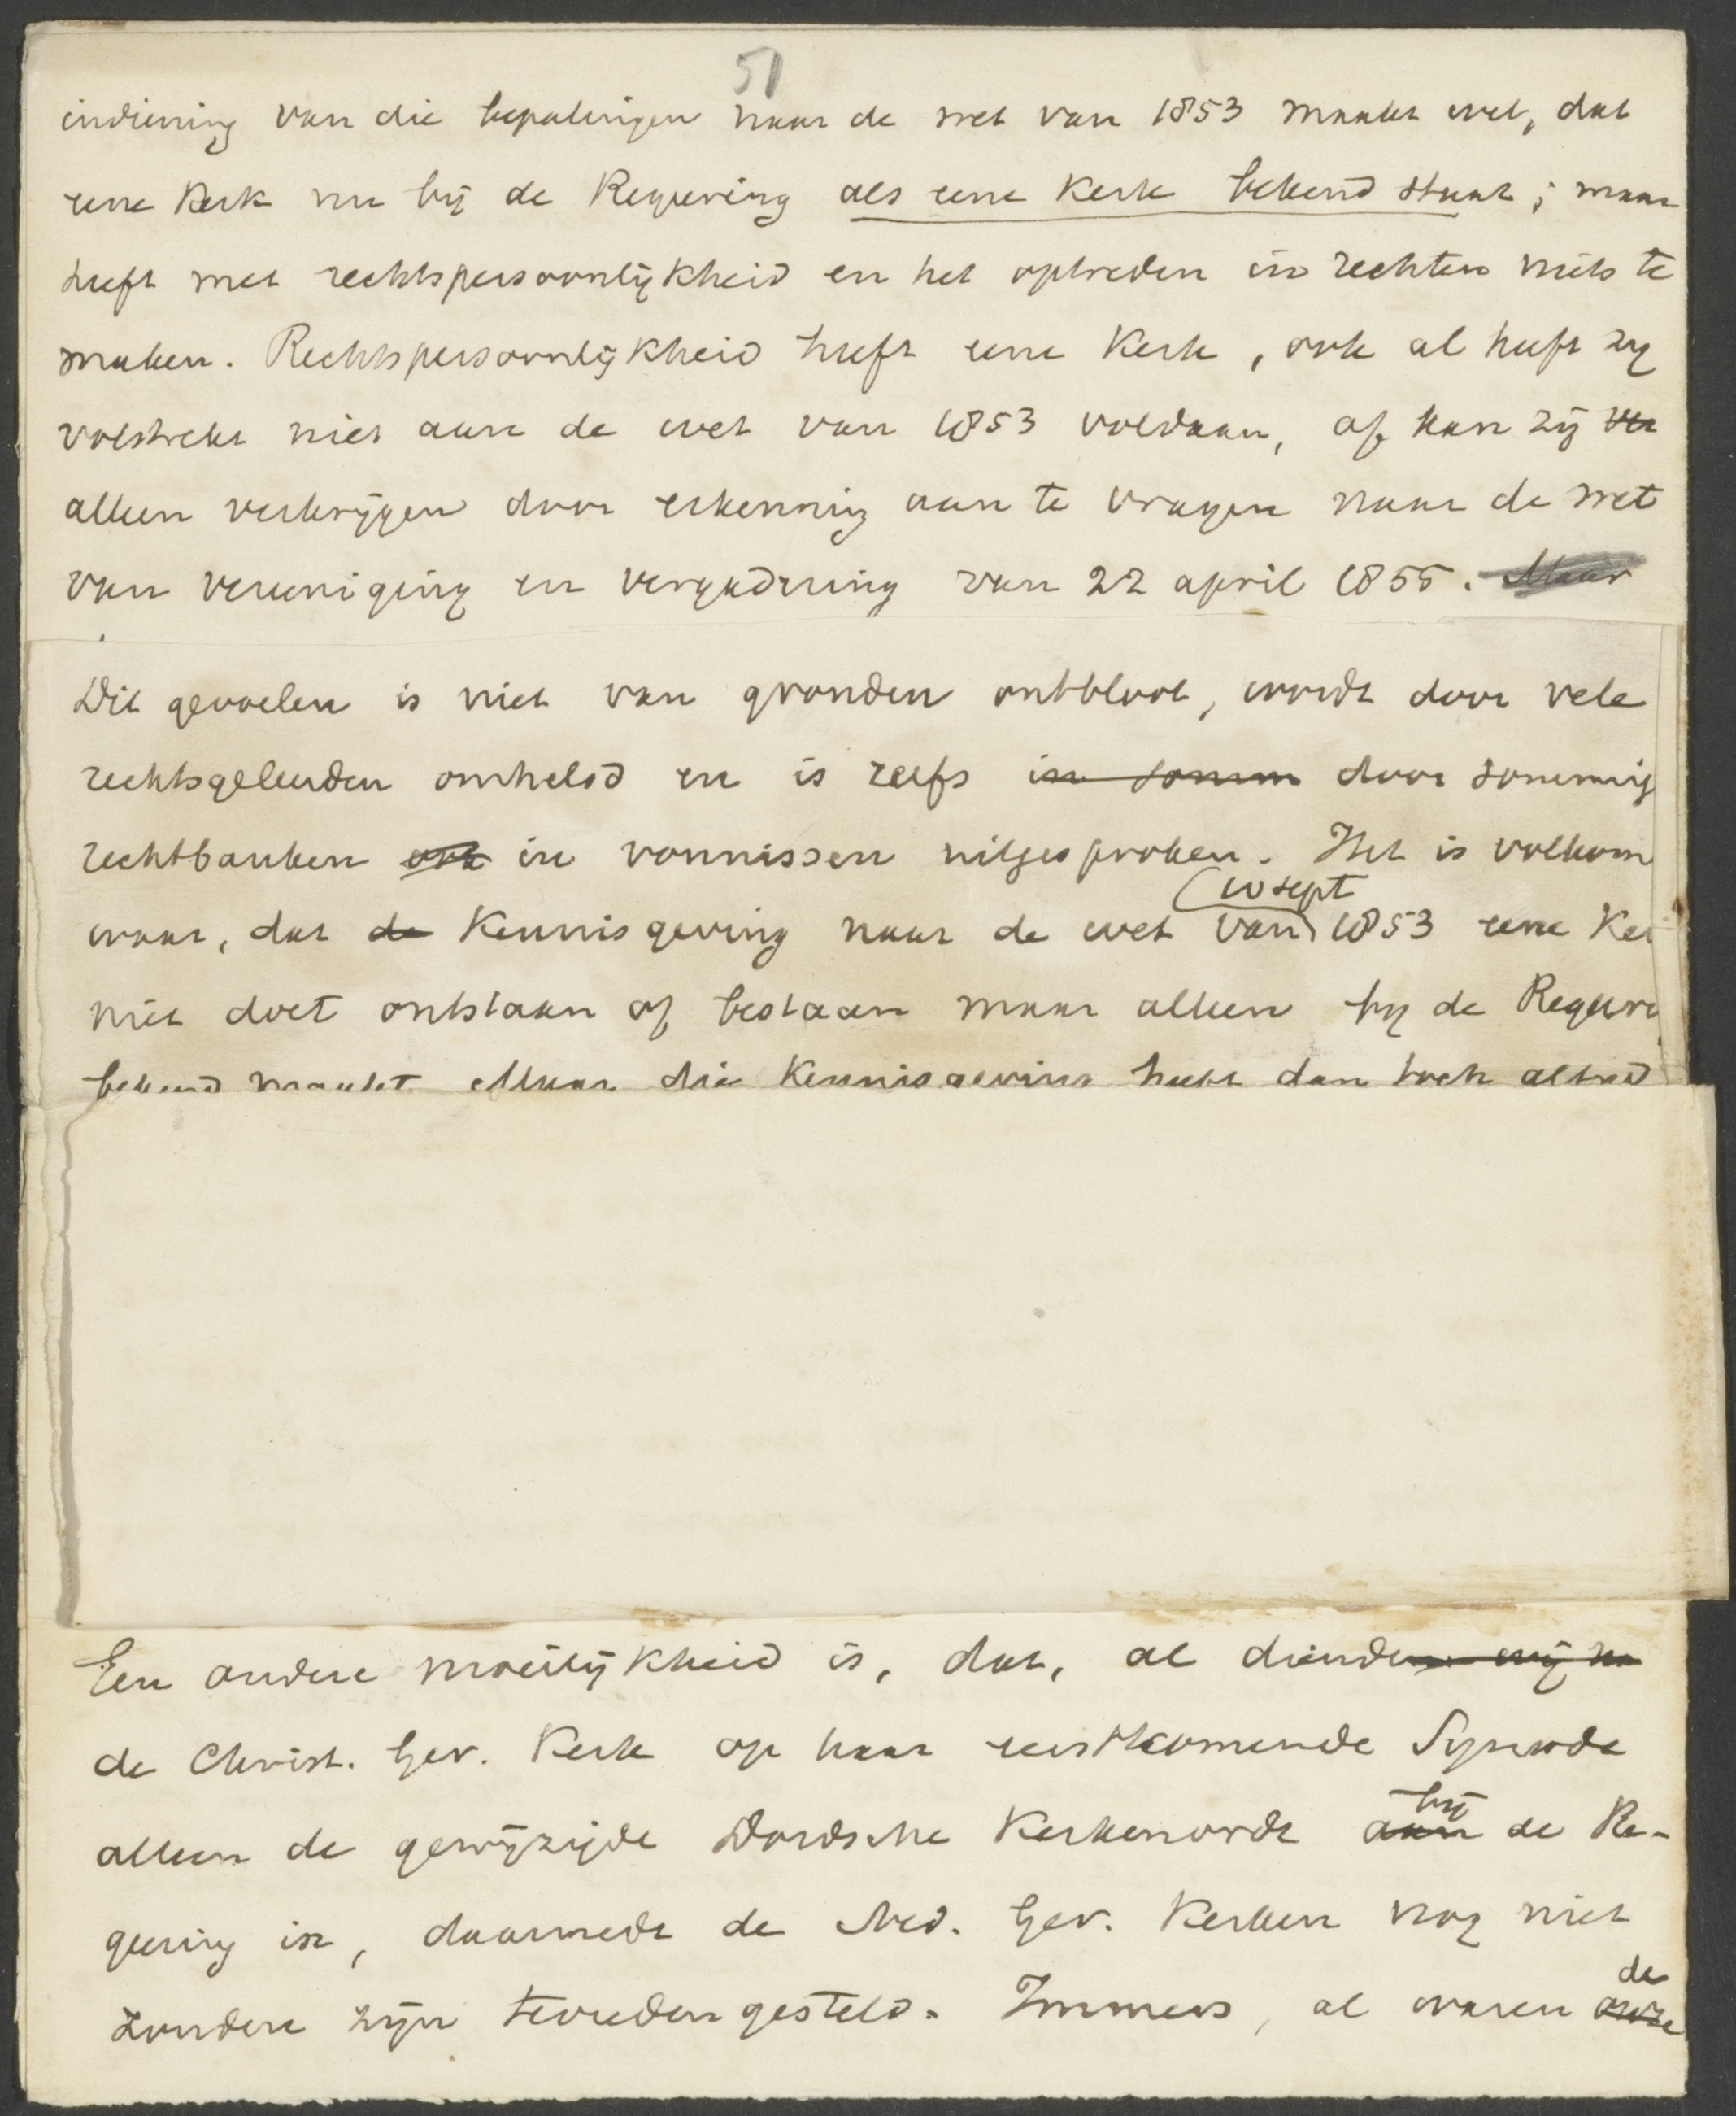 51
indiening van die bepalingen naar de wet van 1853 maakt wel, dat
eene Kerk nu bij de Regeering als eene Kerk bekend staat; maar
heeft met rechtspersoonlijkheid en het optreden in rechten niets te
maken. Rechtspersoonlijkheid heeft eene Kerk, ook al heeft zij
volstrekt niet aan de wet van 1853 voldaan, of kan zij ver
alleen verkrijgen door erkenning aan te vragen naar de wet
van vereeniging en vergadering van 22 april 1855. Maar
Dit gevoelen is niet van gronden ontbloot, wordt door vele
rechtsgeleerden omhelsd en is zelfs in somm door sommig
rechtbanken ook in vonnissen uitgesproken. Het is volkom
(10 sept
waar, dat de Kennisgeving naar de wet van) 1853 eene Ker
niet doet ontstaan of bestaan maar alleen bij de Regeeri
bekend maakt. Maar die Kennisgeving heeft dan toch altijd
Een andere moeilijkheid is, dat, al dienden wij nu
de Christ. Ger. Kerk op haar eerstkomende Synode
bij
alleen de gewijzigde Dordsche Kerkenorde aan de Re-
geering in, daarmede de Ned. Ger. Kerken nog niet
de
zouden zijn tevreden gesteld. Immers, al waren onze